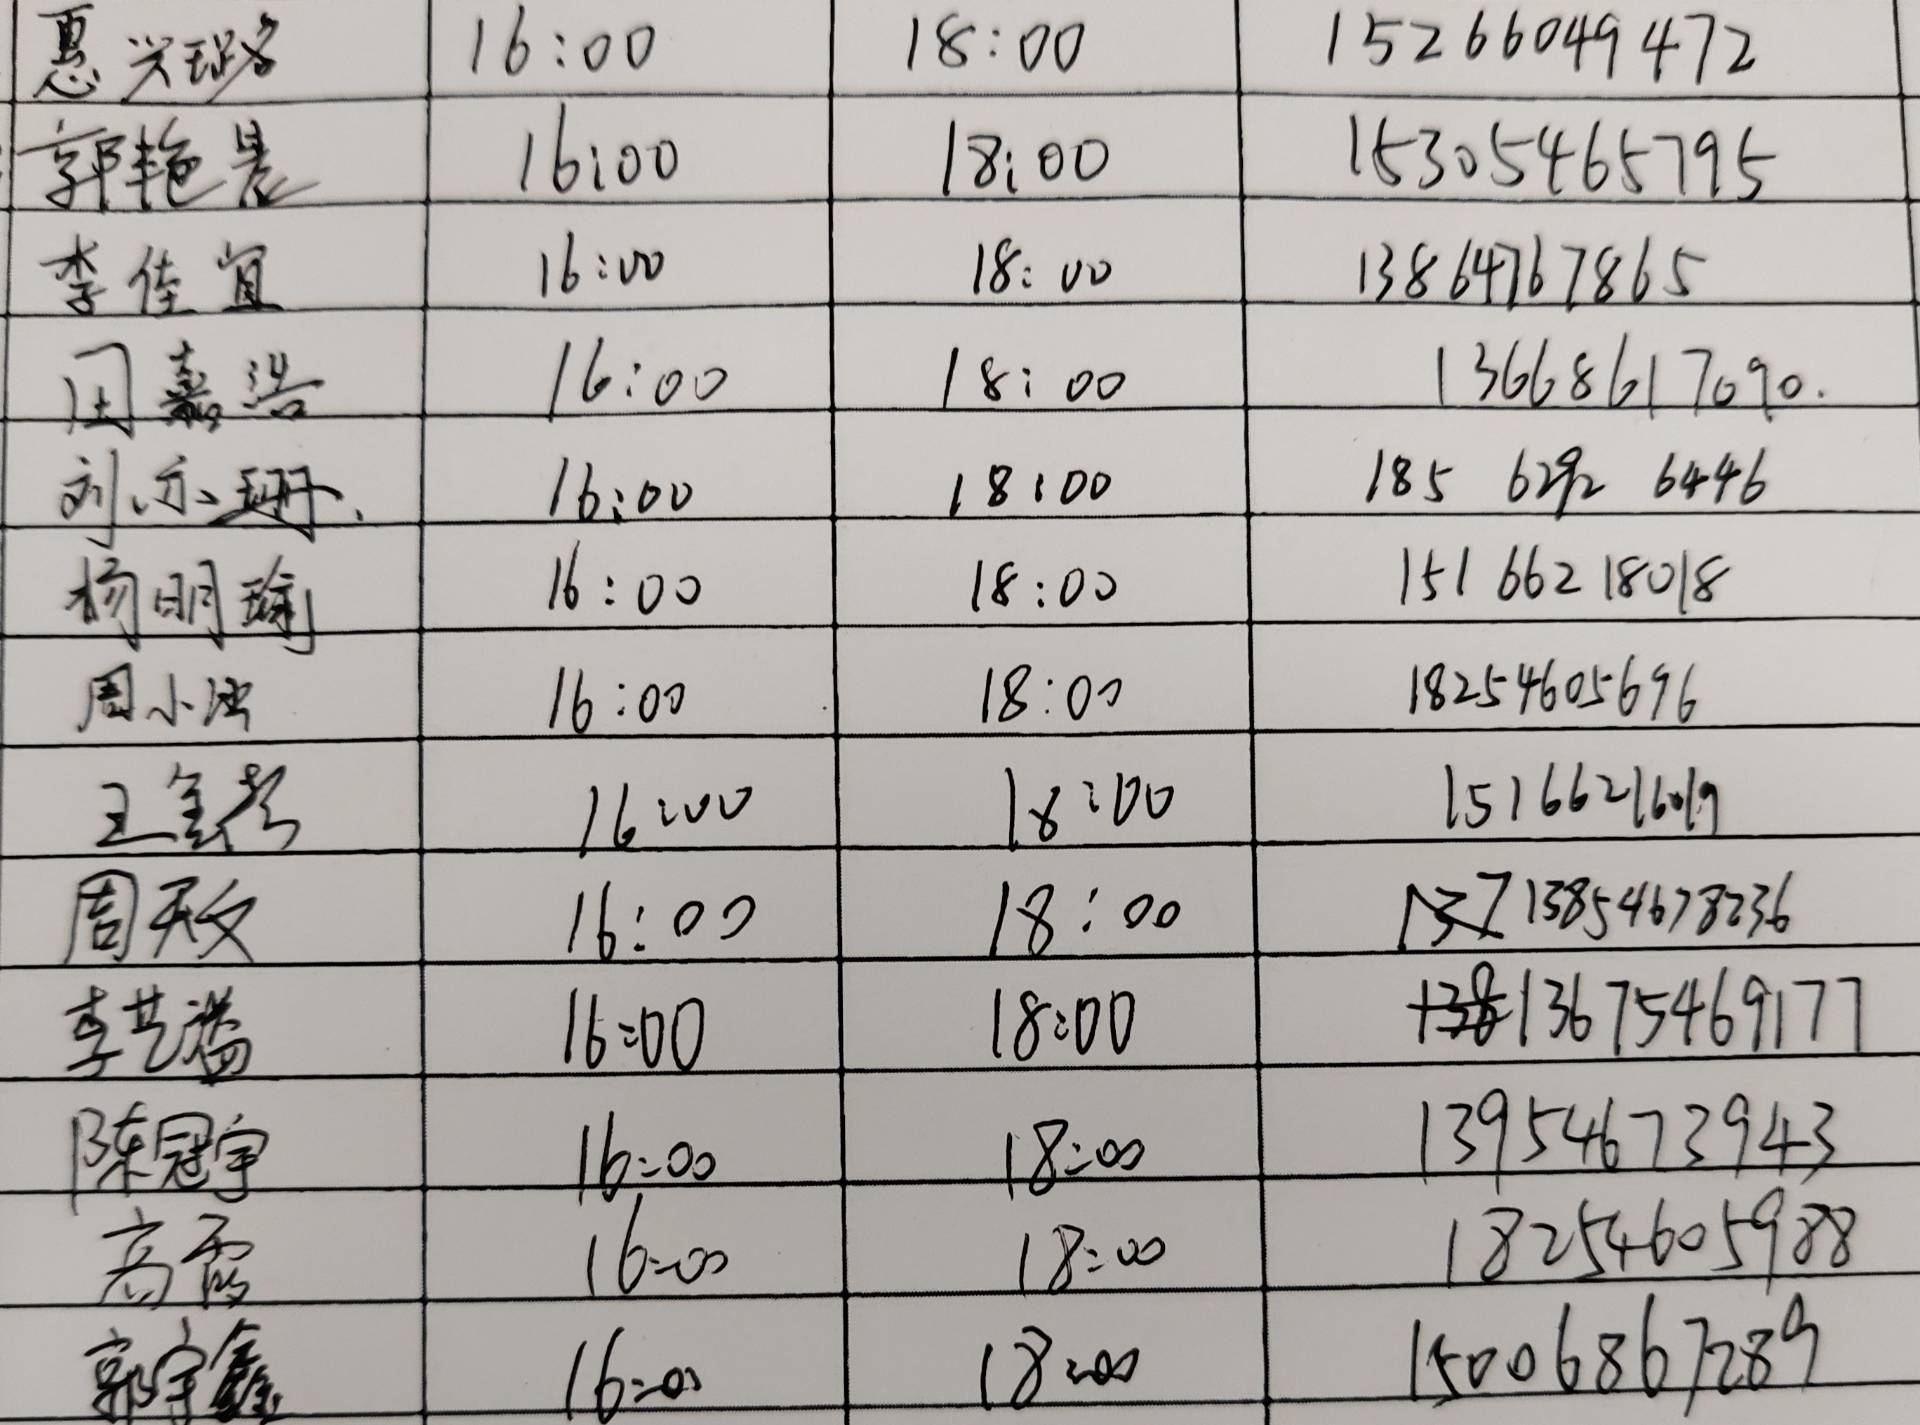 惠兴璐 16:00 18:00 15266049472
郭艳晨 16:00 18:00 15305465795
李佳宜 16:00 18:00 13864767865
田嘉浩 16:00 18:00 13668617090.
刘亦珊. 16:00 18:00 185 6292 6446
杨明瑜 16:00 18:00 15166218018
周小冰 16:00 18:00 18254605696
王 16:00 18:00 15166216019
周天文 16:00 18:00 137 13854678236
李艺潞 16:00 18:00 13675469177
陈冠宇 16:00 18:00 13954673943
高霞 16:00 18:00 18254605988
郭宇鑫 16:00 18:00 15006867289